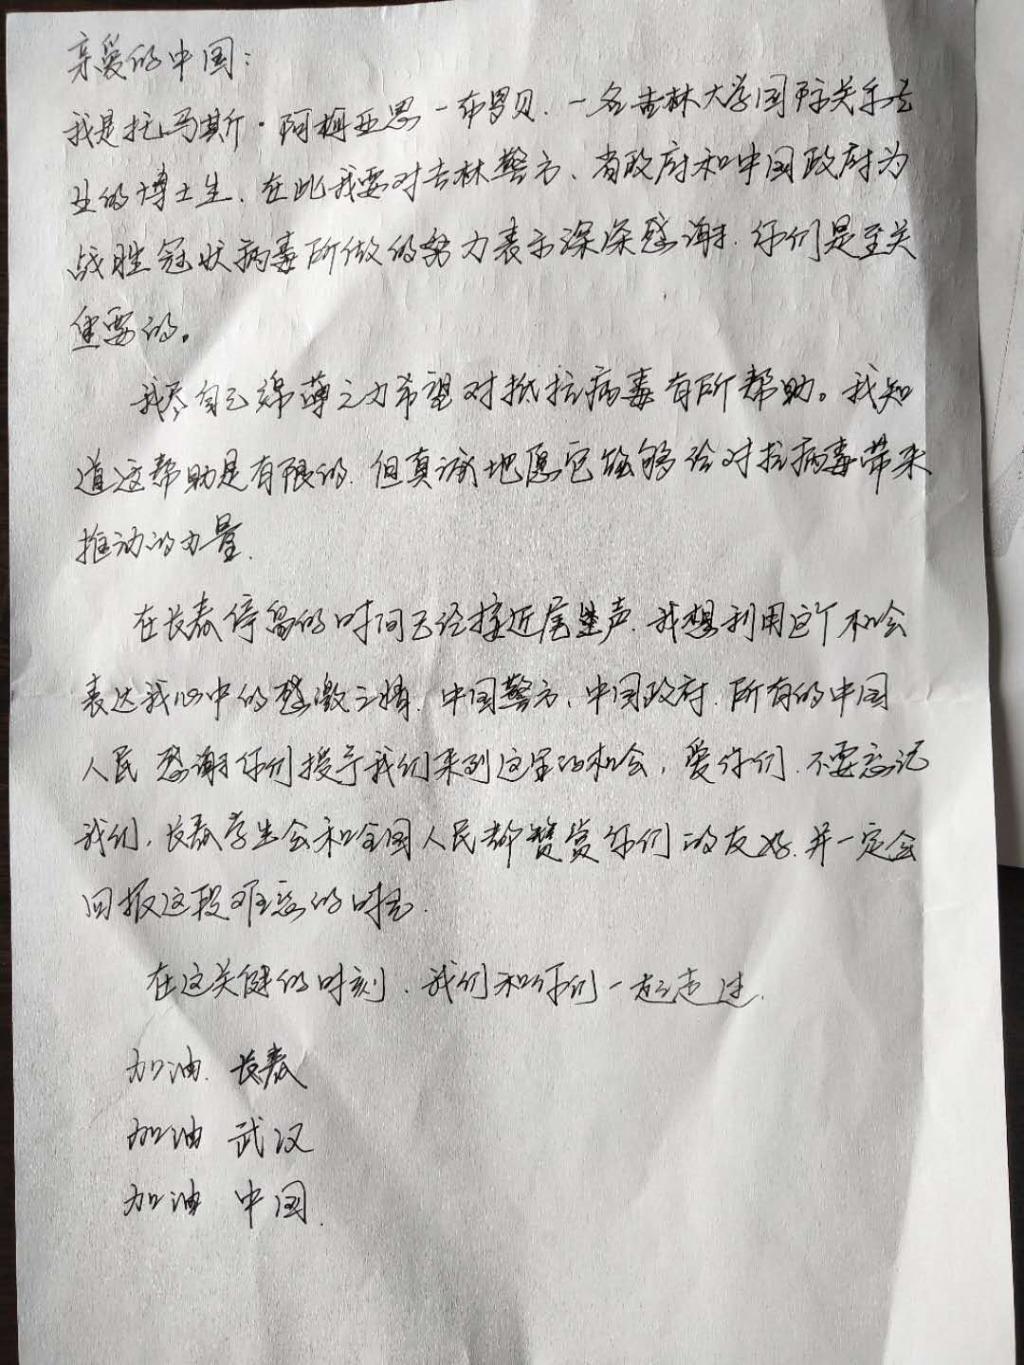 亲爱的中国：
我是托马斯·阿梅亚思－布罗贝，一名吉林大学国际关系专
业的博士生，在此我要对吉林警方、省政府和中国政府为
战胜冠状病毒所做的努力表示深深感谢，你们是至关
重要的。
我尽自己绵薄之力希望对抵抗病毒有所帮助。我知
道这帮助是有限的，但真诚地愿它能够给对抗病毒带来
推动的力量，
在长春停留的时间已经接近尾声，我想利用这个机会
表达我心中的感激之情，中国警方、中国政府，所有的中国
人民 感谢你们授予我们来到这里的机会，爱你们，不要忘记
我们，长春学生会和全国人民都赞赏你们的友好，并一定会
回报这段难忘的时光，
在这关键的时刻，我们和你们一起走过，
加油，长春
加油 武汉
加油 中国，